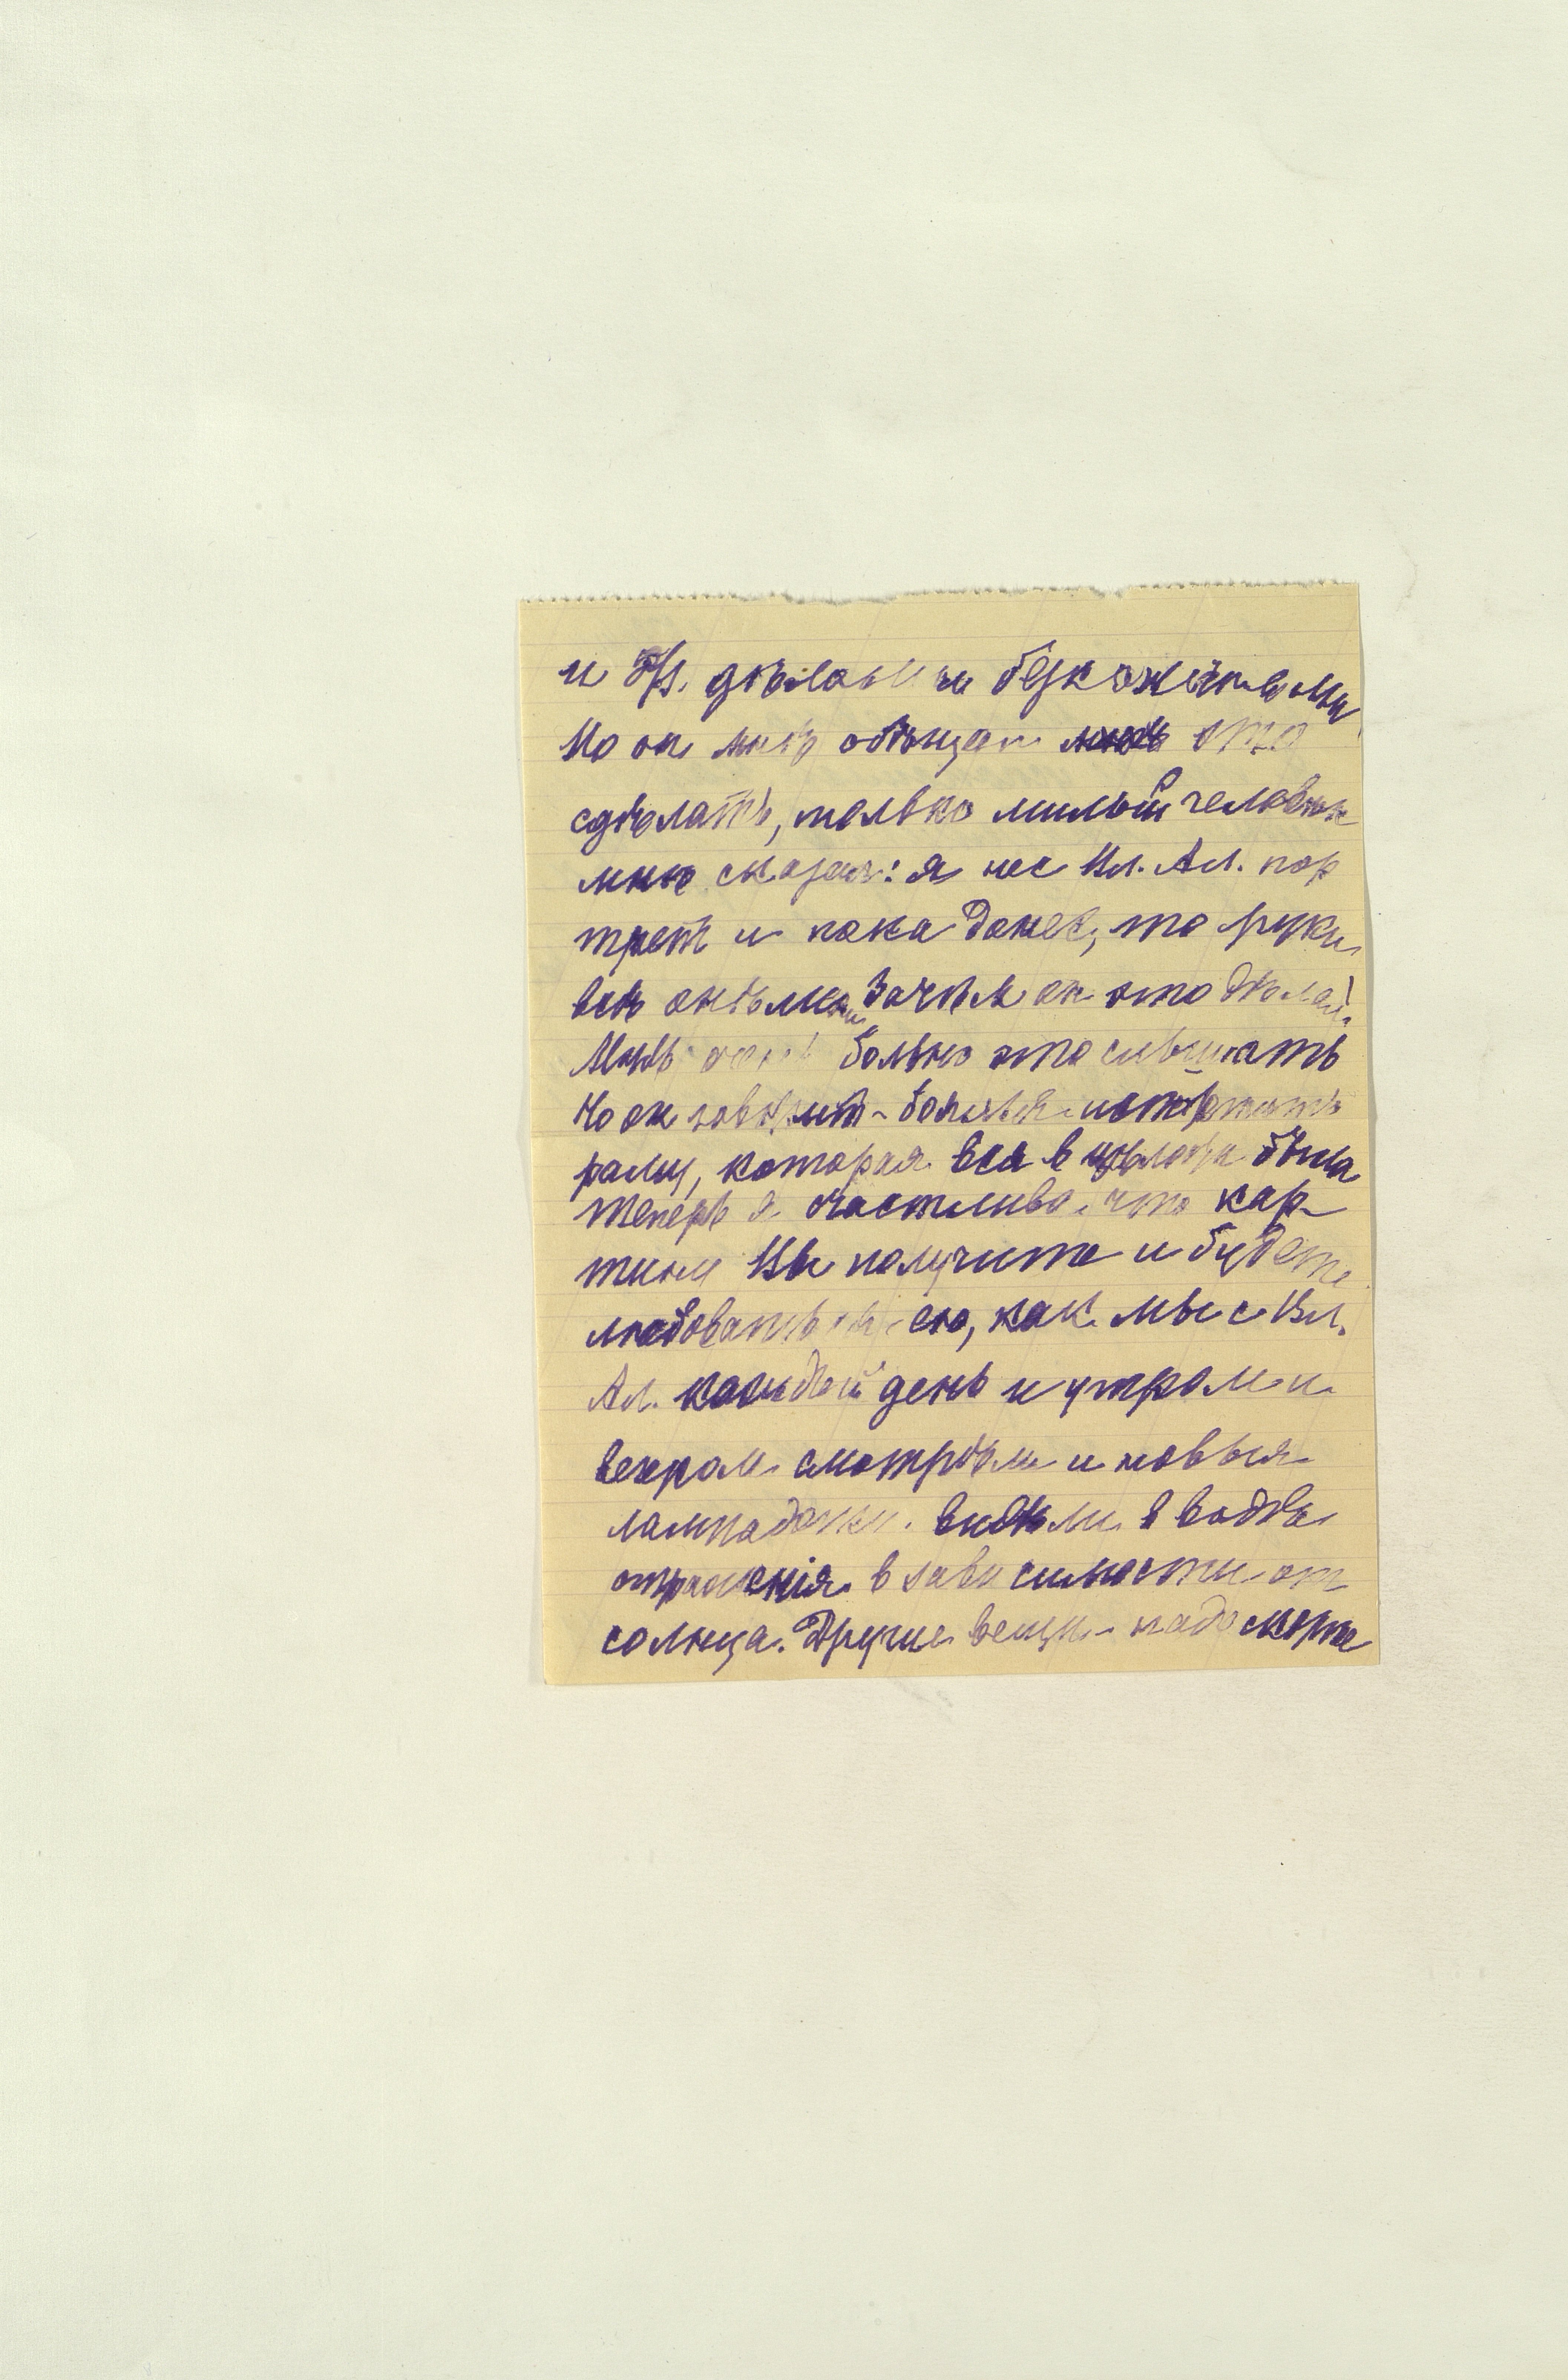 и
Но он мнѣ обѣщал это
сдѣлать, только милый человѣк
мнѣ сказал: я нес Вл. Ал. пор
трет и пока донес, то руки
всѣ онѣмели Зачѣм он это дѣлал.
Мнѣ больно это слышать
Но он говорит - боялся испортить
раму, которая вся в была
теперь я счастлива, что кар-
тину Вы получите и будете
любоваться ею, как мы с Вл.
Ал. каждый день и утром и
вечером смотрѣли и новыя
лампадочки. видѣли в водѣ
отражения в зависимости от
солнца. Другие вещи - надо